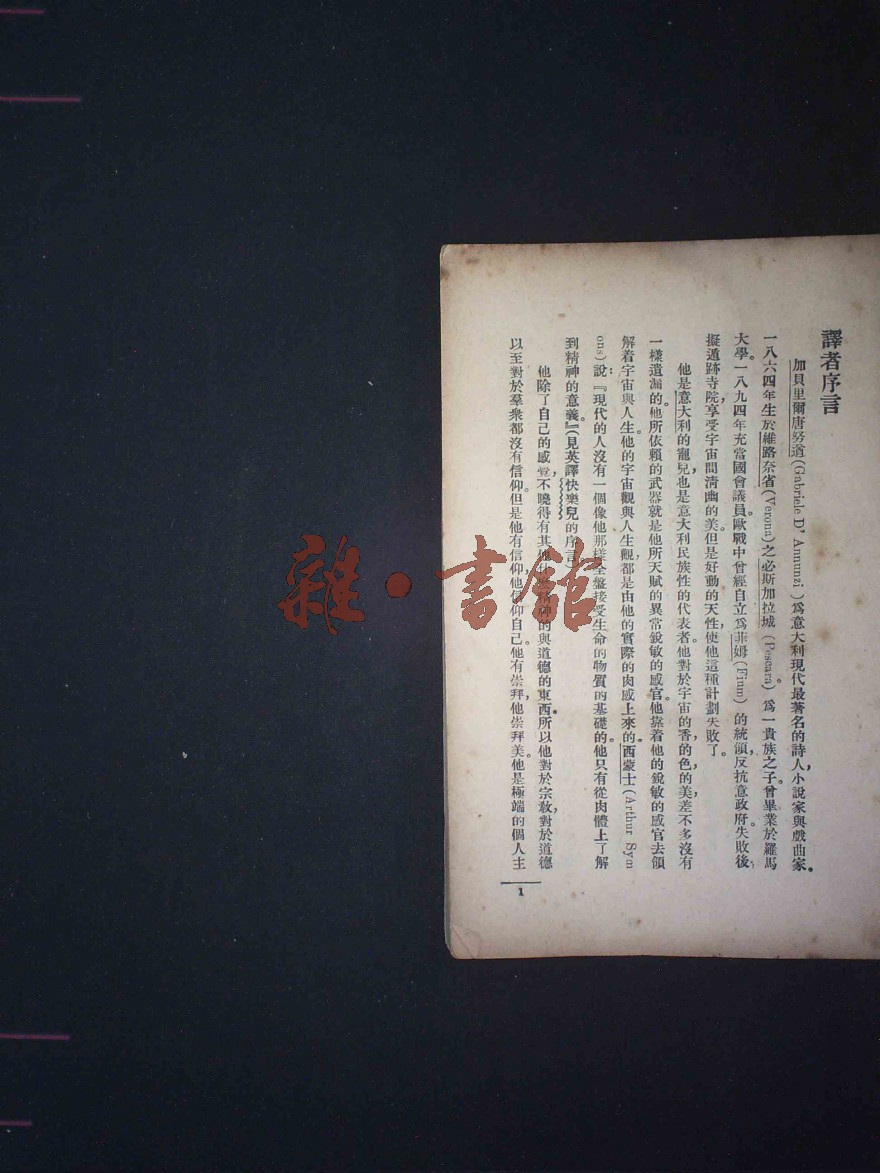 譯者序言
加貝里爾唐努遮(Gabriele D' Annunzi)爲意大利現代最著名的詩人,小說家與戲曲家。
一八六四年生於維路奈省(Verona)之必斯加拉城(Pescara)。爲一貴族之子。曾畢業於羅馬
大學。一八九四年充當國會議員。歐戰中曾經自立爲菲姆(Fium)的統領,反抗意政府。失敗後,
擬遁跡寺院,享受宇宙間清幽的美。但是好動的天性,使他這種計劃失敗了。
他是意大利的寵兒,也是意大利民族性的代表者。他對於宇宙的香的,色的,美,差不多沒有
一樣遺漏的。他所依賴的武器就是他所天賦的異常銳敏的感官。他靠着他的銳敏的感官去領
解着宇宙與人生。他的宇宙觀與人生觀,都是由他的實際的肉感上來的。西蒙士(Arthur Sym
ons)說:『現代的人沒有一個像他那樣全盤接受生命的物質的基礎的。他只有從肉體上了解
到精神的意義。』(見英譯快樂兒的序言)
他除了自己的感覺,不曉得有其他什麼精神的與道德的東西。所以他對於宗教,對於道德
以至對於羣衆都沒有信仰。但是他有信仰,他信仰自己。他有崇拜,他崇拜美。他是極端的個人主
1
雜·書館